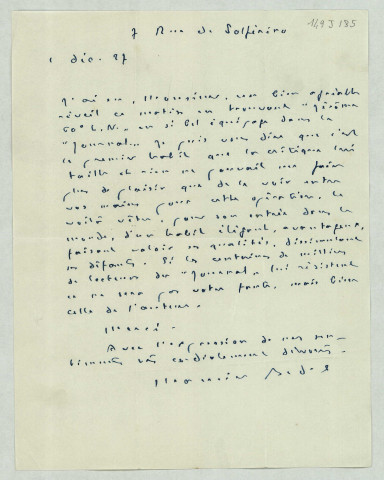 149 J 185
7 Rue de Solférino
1 déc. 37
J'ai eu, Monsieur, un bien agréable
réveil ce matin en trouvant "Jérôme
60° L.N." en si bel équipage dans le
"Journal". Je puis vous dire que c'est
le premier habit que la critique lui
taille et rien ne pouvait me faire
plus de plaisir que de le voir entre
vos mains pour cette opération. Le
voilà vêtu, pour son entrée dans le
monde, d'un habit élégant, avantageux,
faisant valoir ses qualités, dissimulant
ses défauts. Si les centaines de milliers
de lecteurs du "Journal" lui résistent
ce ne sera pas votre faute, mais bien
celle de l'auteur.
Merci.
Avec l'expression de mes sen-
timents très cordialement dévoués.
Maurice Bedel